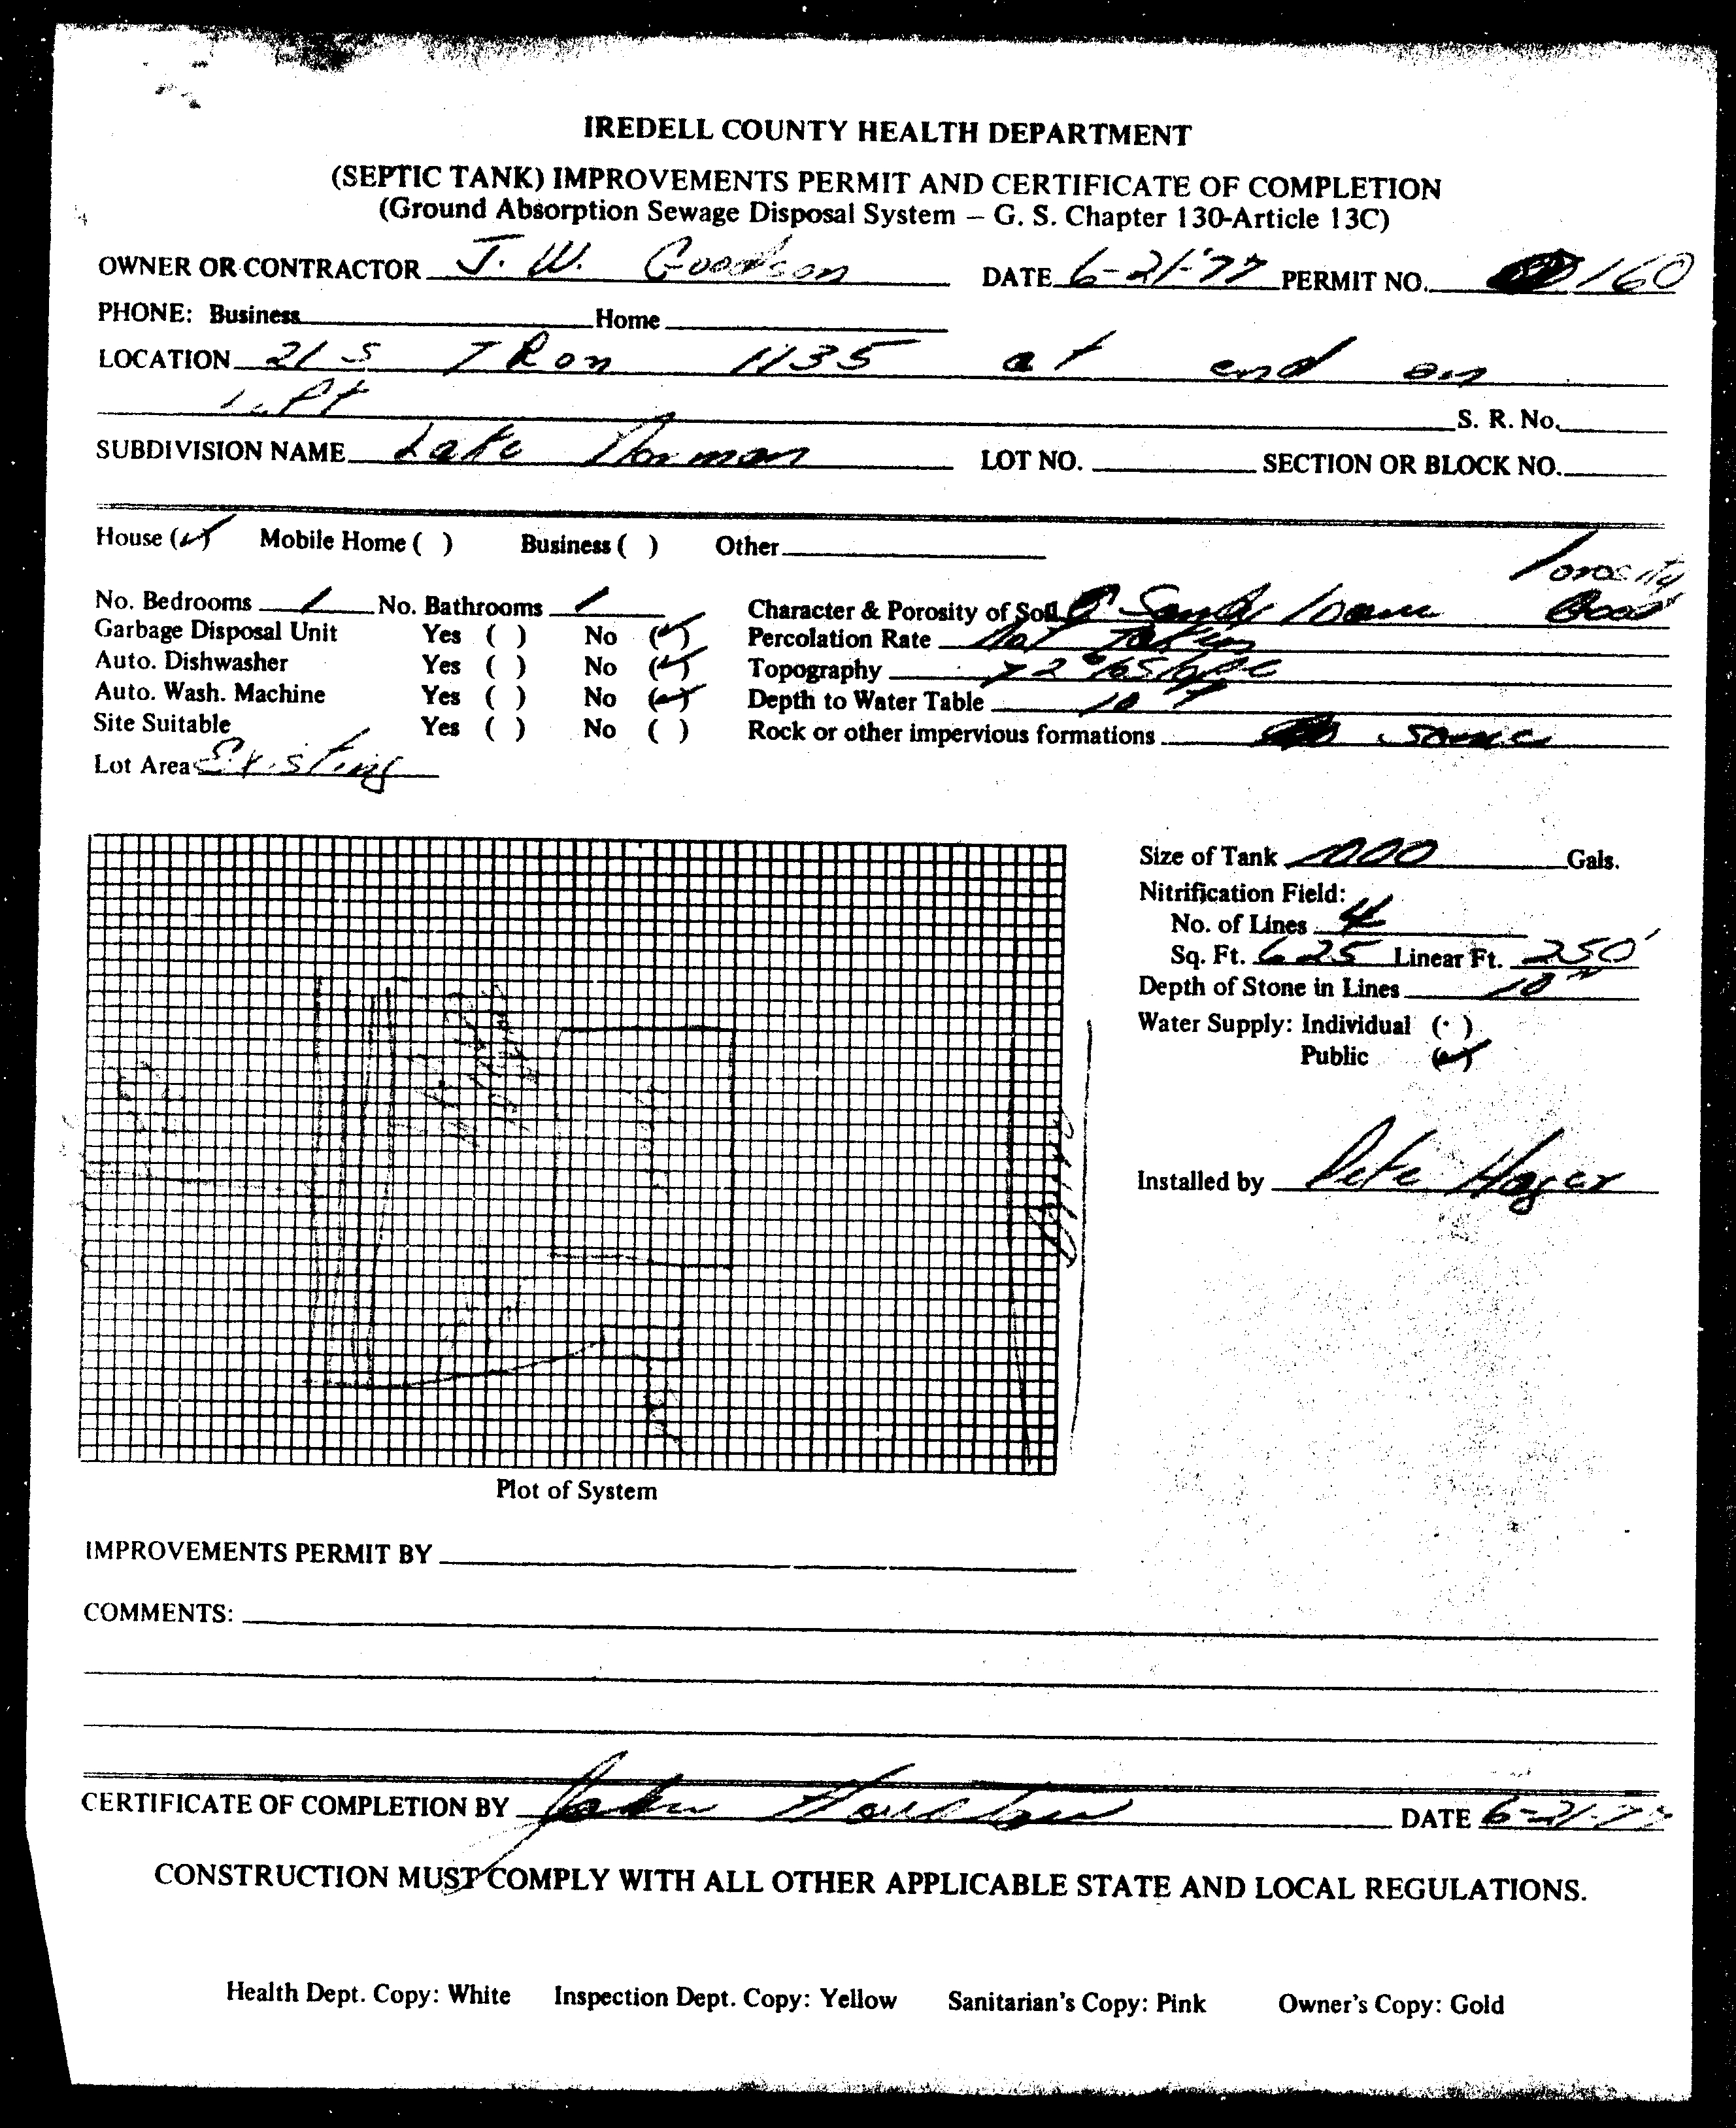 IREDELL COUNTY HEALTH DEPARTMENT
(SEPTIC TANK) IMPROVEMENTS PERMIT AND CERTIFICATE OF COMPLETION
(Ground Absorption Sewage Disposal System – G. S. Chapter 130-Article 13C)
OWNER OR CONTRACTOR J. W. Goodson DATE 6-21-77 PERMIT NO. 160
PHONE: Business Home
LOCATION 21 S T R on 1135 at end on
left S. R. No.
SUBDIVISION NAME Lake Norman LOT NO. SECTION OR BLOCK NO.
House (✓) Mobile Home ( ) Business ( ) Other
Porosity
No. Bedrooms 1 No. Bathrooms 1 Character & Porosity of Soil Sandy loam Good
Garbage Disposal Unit Yes ( ) No (✓) Percolation Rate Not Taken
Auto. Dishwasher Yes ( ) No (✓) Topography 72% Slope
Auto. Wash. Machine Yes ( ) No (✓) Depth to Water Table 10
Site Suitable Yes ( ) No ( ) Rock or other impervious formations some
Lot Area Existing
Size of Tank 1000 Gals.
Nitrification Field:
No. of Lines 4
Sq. Ft. 625 Linear Ft. 250'
Depth of Stone in Lines 10"
Water Supply: Individual ( )
Public (✓)
Installed by Pete Hager
Plot of System
IMPROVEMENTS PERMIT BY
COMMENTS:
CERTIFICATE OF COMPLETION BY John DATE 6-21-77
CONSTRUCTION MUST COMPLY WITH ALL OTHER APPLICABLE STATE AND LOCAL REGULATIONS.
Health Dept. Copy: White Inspection Dept. Copy: Yellow Sanitarian's Copy: Pink Owner's Copy: Gold